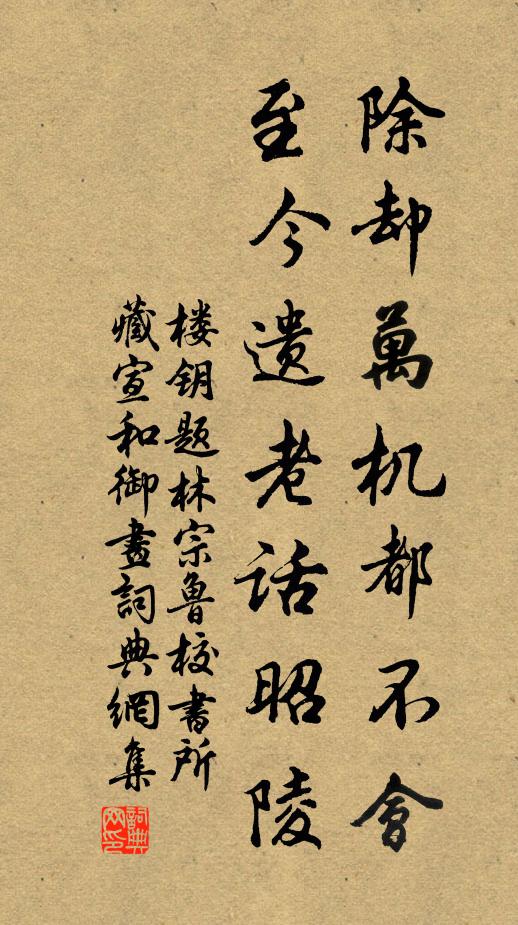 除却萬机都不會
至今遗老话昭陵
楼钥题林宗鲁校書所
藏宣和御畫詞典網集
詞典网印